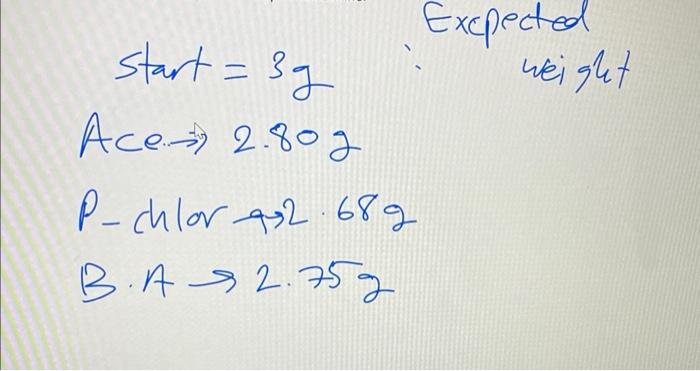 Excpected
weight
Start = 3g :
Ace → 2.80g
P-chlor → 2.68g
B.A → 2.75g